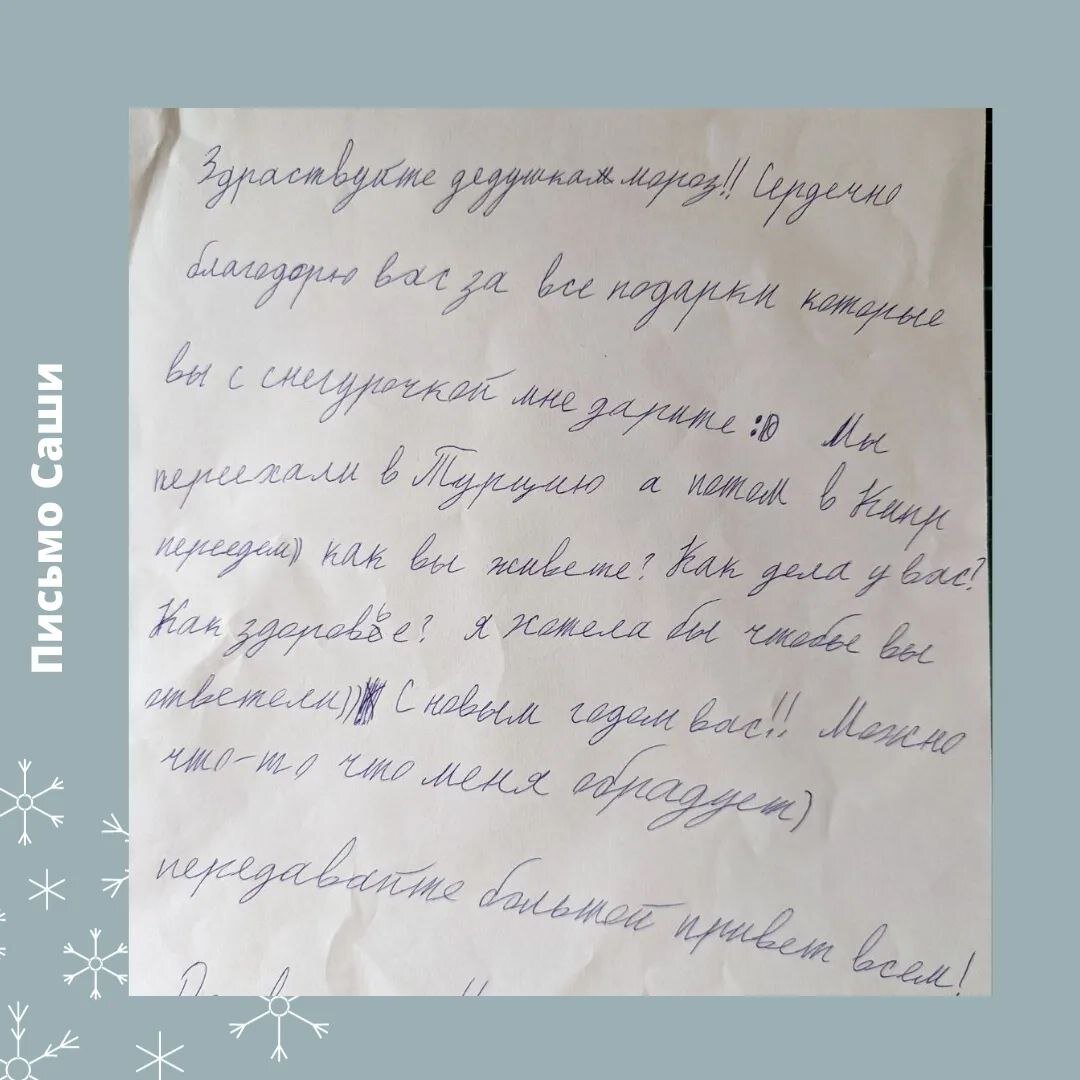 Письмо Саши
Здраствуйте дедушка мороз!! Сердечно
благодорю вас за все подарки которые
вы с снегурочкой мне дарите :D Мы
переехали в Турцию а потом в Кипр
переедем)) как вы живете? Как дела у вас?
Как здоровье? я хотела бы чтобы вы
ответели)) С новым годом вас!! Можно
что-то что меня обрадует)
передавайте большой привет всем!